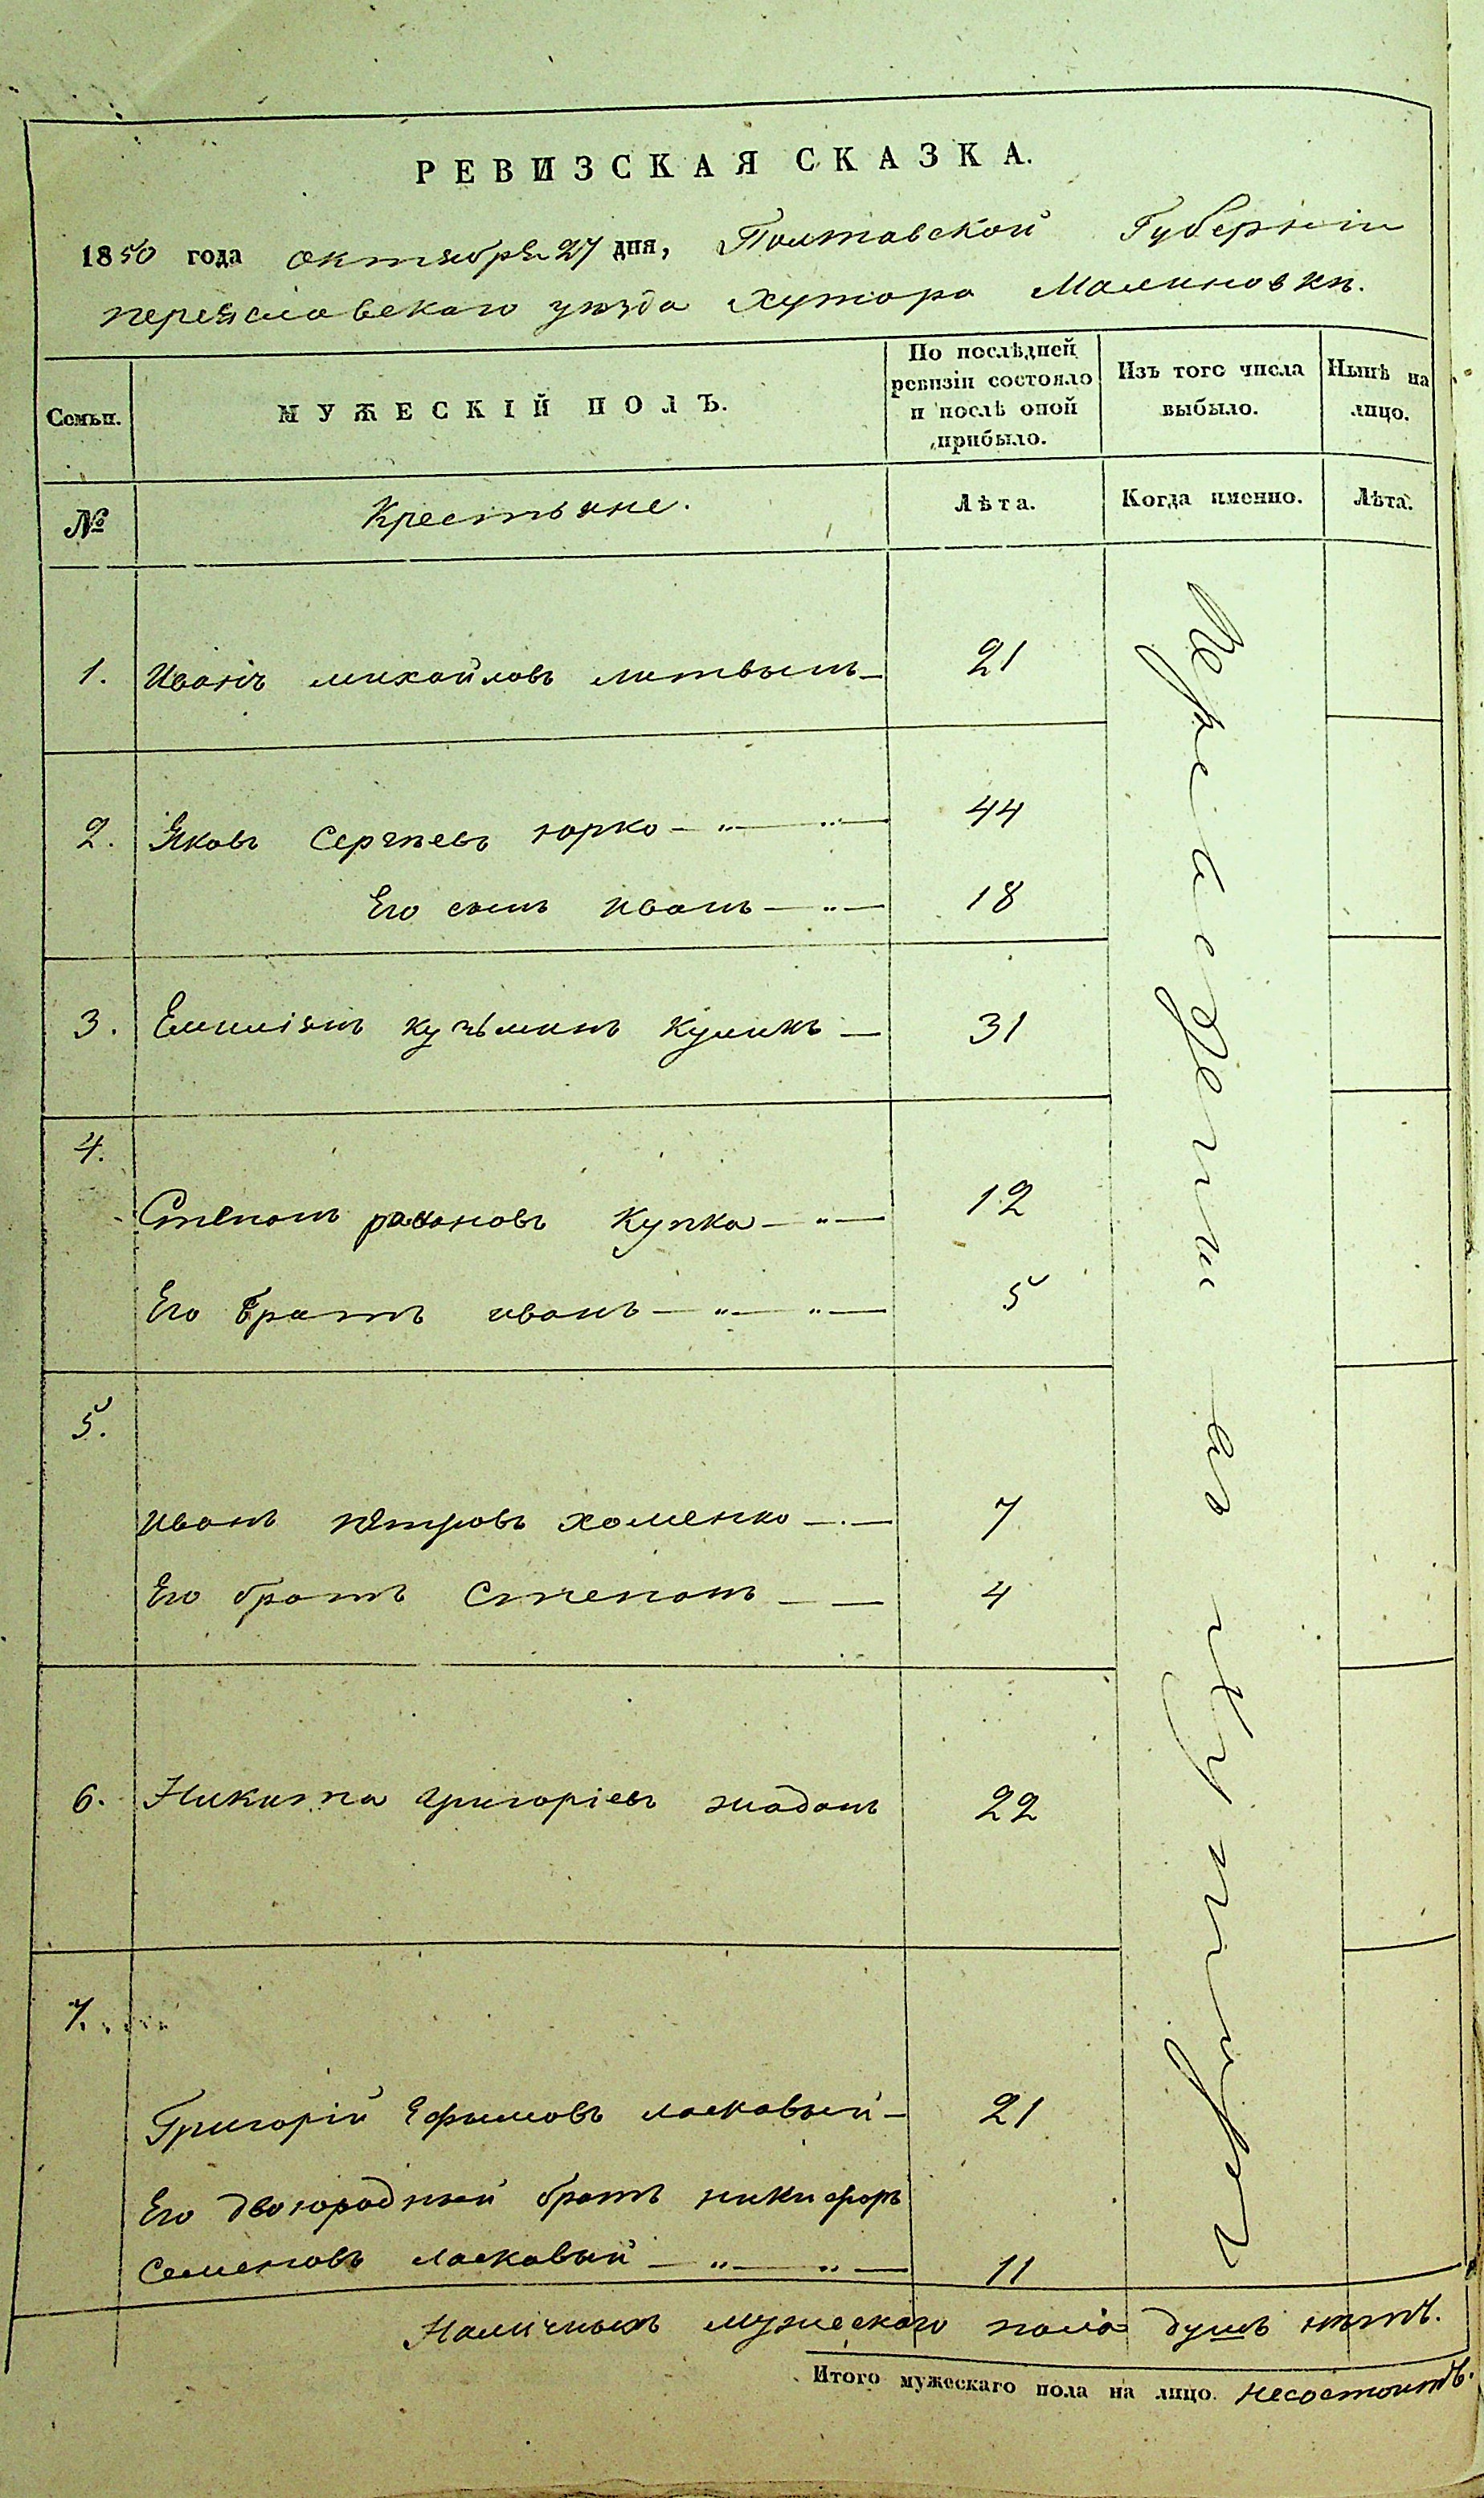 РЕВИЗСКАЯ СКАЗКА.
1850 года октября 27 дня, Полтавской Губерніи
переяславскаго уѣзда Хутора Малиновки.
Семьи.
МУЖЕСКІЙ ПОЛЪ.
По послѣдней
ревизіи состояло
и послѣ оной
прибыло.
Изъ того числа
выбыло.
Нынѣ на
лицо.
№
Крестьяне.
Лѣта.
Когда именно.
Лѣта.
1. Иванъ михайловъ литвынъ 21
2. Яковъ Сергѣевъ юрко 44
Его сынъ иванъ 18
3. Емиліянъ кузьминъ куликъ 31
4.
Степанъ романовъ купка 12
Его братъ иванъ 5
5.
Иванъ петровъ хоменко 7
Его братъ Степанъ 4
6. Никита григоріевъ жаданъ 22
7.
Григорій Ефимовъ ласкавый 21
Его двоюродный братъ никифоръ
Семеновъ ласкавый 11
Переведены въ
Наличныхъ мужескаго пола душъ нѣтъ.
Итого мужескаго пола на лицо. несостоитъ.